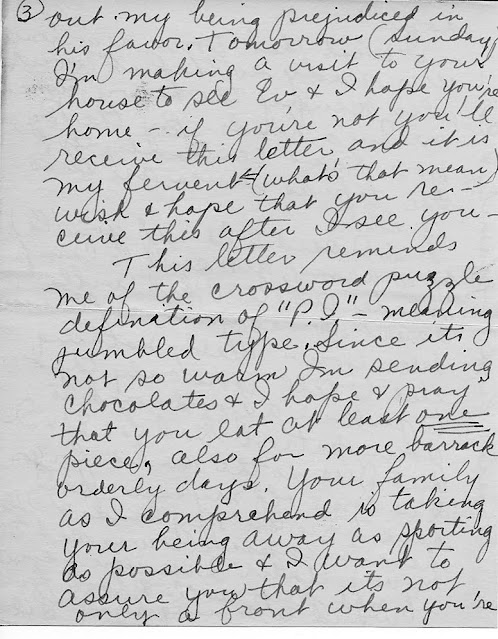 ③ out my being prejudiced in
his favor. Tomorrow (Sunday)
I'm making a visit to your
house to see Ev & I hope you're
home - if you're not you'll
receive this letter and it is
my fervent (what's that mean)
wish & hope that you re-
ceive this after I see you -
This letter reminds
me of the crossword puzzle
defination of "P.I." - meaning
jumbled type. Since its
not so warm I'm sending
chocolates & I hope & pray
that you eat at least one
piece, also for more barrack
orderly days. Your family
as I comprehend is taking
your being away as sporting
as possible & I want to
assure you that its not
only a front when you're